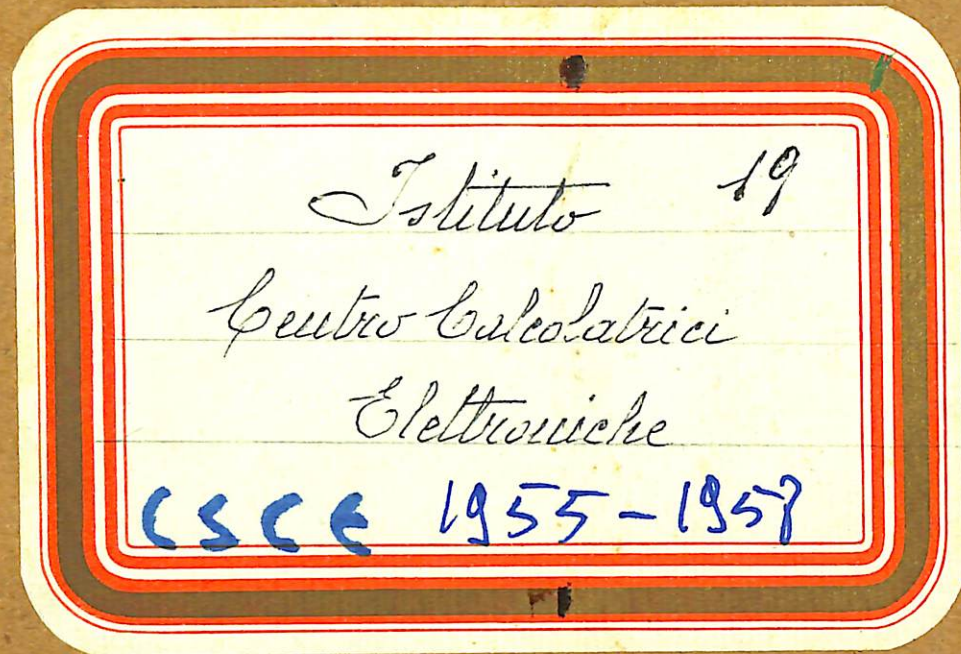 Istituto 19
Centro Calcolatrici
Elettroniche
CSCE 1955-1958